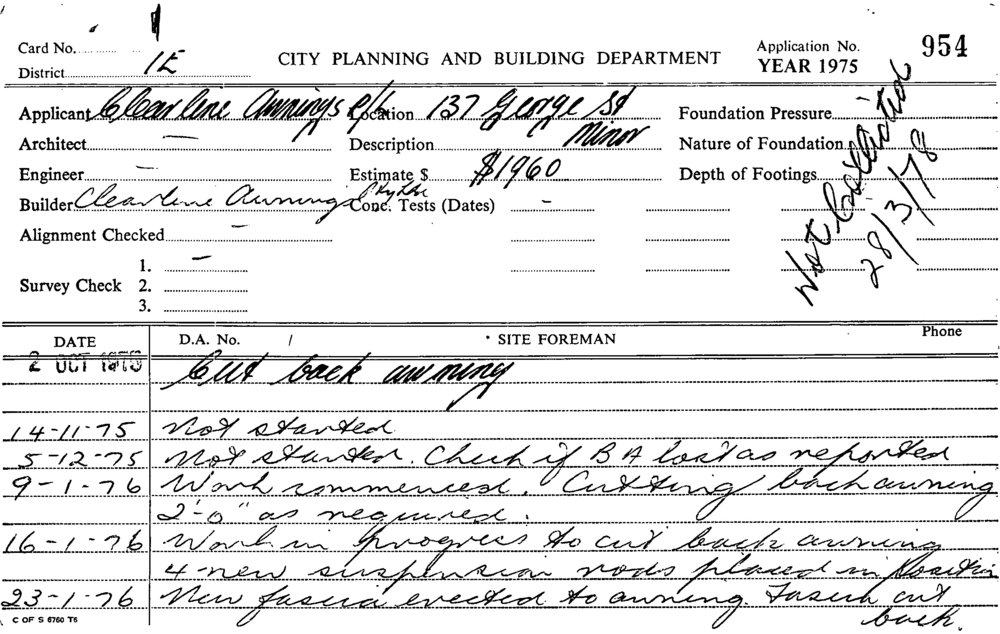 Card No. 1
District 1E
CITY PLANNING AND BUILDING DEPARTMENT
Application No. 954
YEAR 1975
Applicant Clearline Awnings P/L Location 137 George St Foundation Pressure
Architect — Description Minor Nature of Foundation
Engineer — Estimate $ $1960 Depth of Footings
Builder Clearline Awnings Conc. Tests (Dates) –
Alignment Checked
Survey Check 1. –
2.
3.
Not
28/3/78
DATE D.A. No. / SITE FOREMAN Phone
2 OCT Cut back awning
14-11-75 Not started
5-12-75 Not started. Check if BA lost as reported
9-1-76 Work commenced. Cutting back awning
2'-0" as required.
16-1-76 Work in progress to cut back awning
4-new suspension rods placed in position
23-1-76 New fascia erected to awning. Fascia cut
back.
C OF S 6760 T6